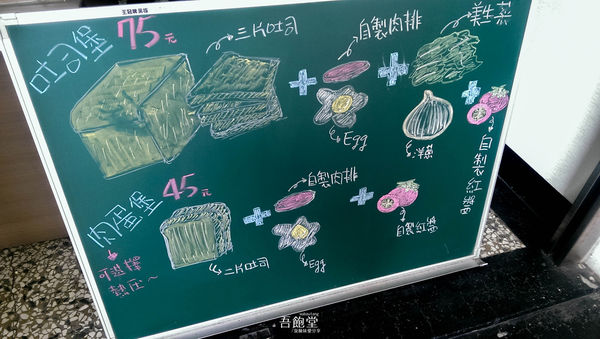 吐司堡 75元
三片吐司
自製肉排
Egg
美生菜
洋蔥
自製紅醬
肉蛋堡 45元
可選擇
熱压~
二片吐司
自製肉排
Egg
自製紅醬
吾飽堂